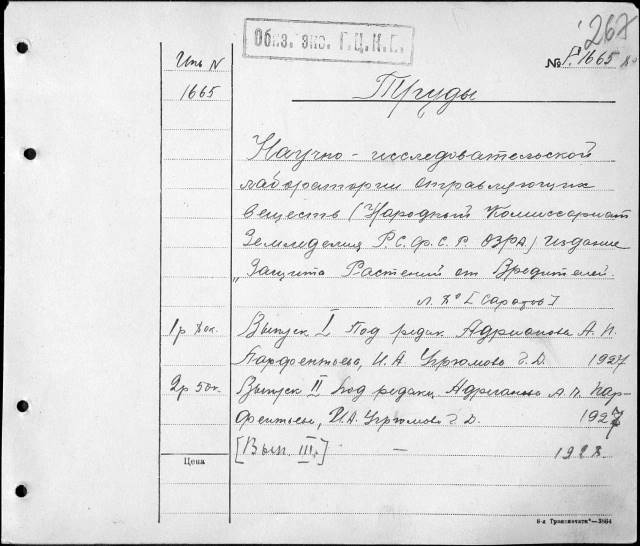 267
Обяз. экз. Г.Ц.К.Г.
Инв N
№ Г.1665
1665
Труды
Научно-исследовательской
лаборатории отравляющих
веществ (Народный Комиссариат
Земледелия Р.С.Ф.С.Р. ОЗРА) Издание
„Защита Растений от Вредителей.
л. 8° [Саратов]
1р Выпуск I Под редак. Адрианова А. П.
Парфентьева, И. А Угрюмова Г. Д. 1927
2р 50к. Выпуск II Под редакц. Адрианова А. П. Пар-
фентьева, И. А. Угрюмова Г. Д. 1927
[Вып. III.] — 1928.
Цена
6-я Транспечати"—3864